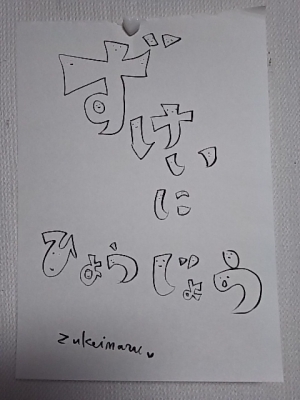 ずけい
に
ひょうじょう
zukeimaru